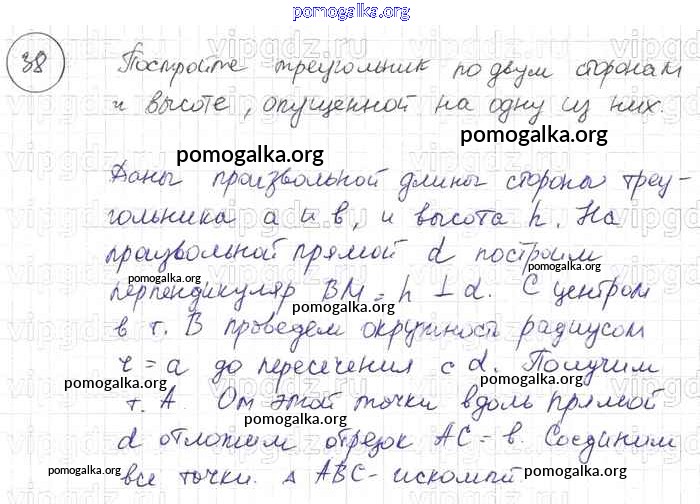 pomogalka.org
38 Постройте треугольник по двум сторонам
и высоте, опущенной на одну из них.
pomogalka.org
pomogalka.org
Даны произвольной длины стороны треу-
гольника а и в, и высота h. На
произвольной прямой d построим
pomogalka.org
pomogalka.org
перпендикуляр BM = h ⊥ d. С центром
pomogalka.org
в т. B проведем окружность радиусом
r = a до пересечения с d. Получим
pomogalka.org
pomogalka.org
т. A. От этой точки вдоль прямой
pomogalka.org
d отложим отрезок AC = в. Соединим
все точки. Δ ABC - искомый
pomogalka.org
pomogalka.org
pomogalka.org